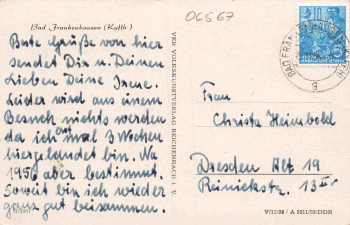 Bad Frankenhausen (Kyffh.)
06567
Beste Grüße von hier
sendet Dir u. Deinen
Lieben Deine Irene.
Leider wird aus einem
Besuch nichts werden
da ich mal 3 Wochen
hiergelandet bin. Na
1956 aber bestimmt.
Soweit bin ich wieder
ganz gut beisammen.
VEB VOLKSKUNSTVERLAG REICHENBACH I. V.
10
BAD FRANKENHAUSEN
g
Frau
Christa Heimbold
Dresden Alt 19
Reinickstr. 13